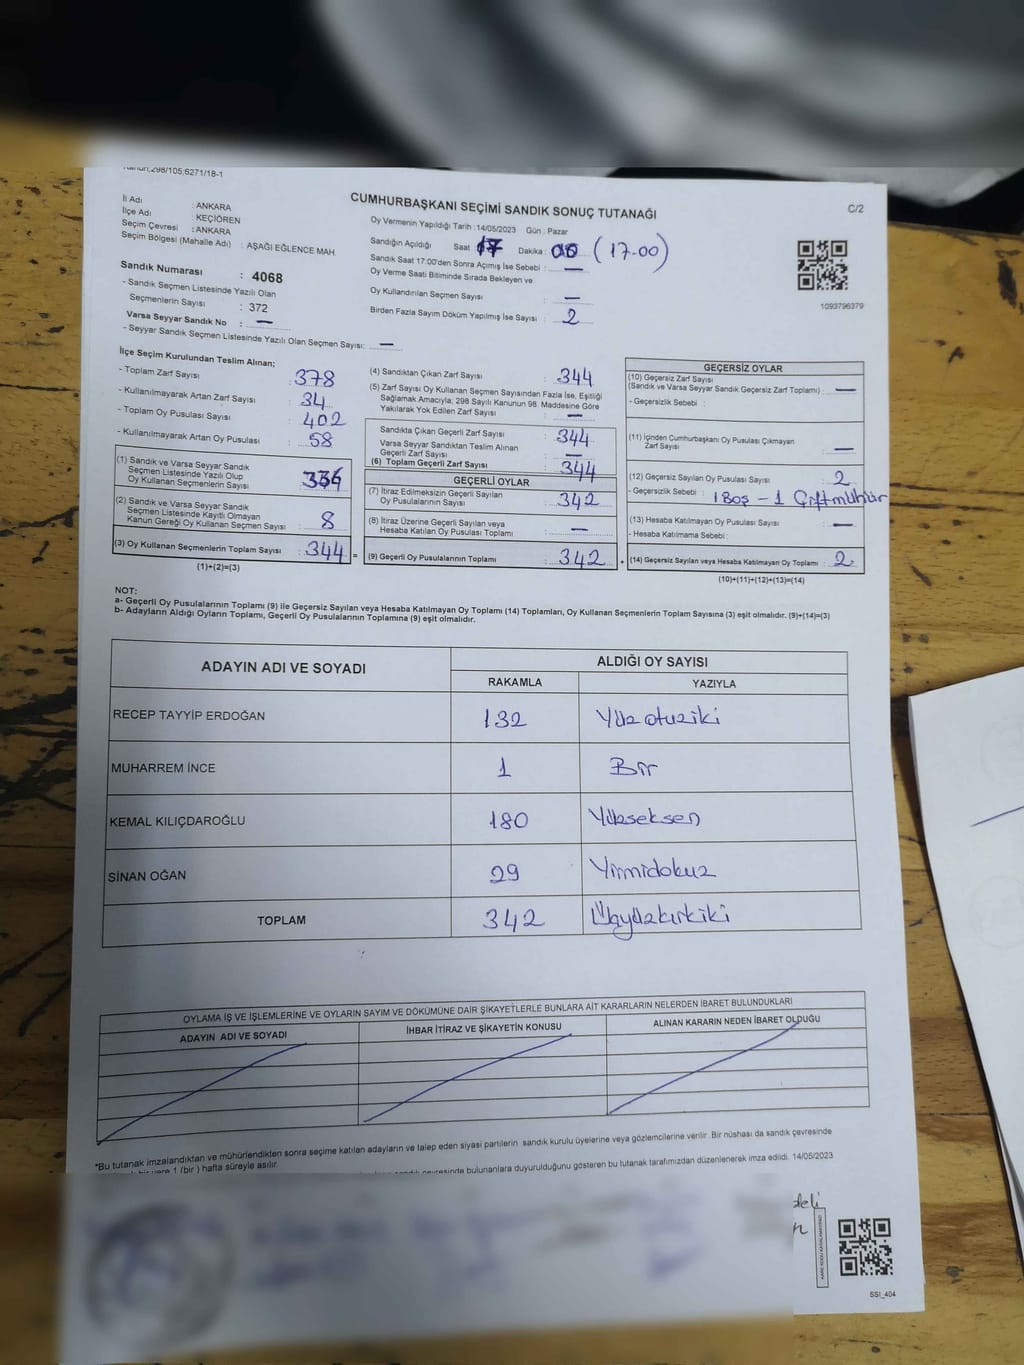 Kanun;298/105;6271/18-1
CUMHURBAŞKANI SEÇİMİ SANDIK SONUÇ TUTANAĞI
C/2
İl Adı : ANKARA
İlçe Adı : KEÇİÖREN
Seçim Çevresi : ANKARA
Seçim Bölgesi (Mahalle Adı) : AŞAĞI EĞLENCE MAH.
Sandık Numarası : 4068
- Sandık Seçmen Listesinde Yazılı Olan
Seçmenlerin Sayısı : 372
Varsa Seyyar Sandık No : —
- Seyyar Sandık Seçmen Listesinde Yazılı Olan Seçmen Sayısı: —
Oy Vermenin Yapıldığı Tarih :14/05/2023 Gün : Pazar
Sandığın Açıldığı Saat : 17 Dakika : 00 (17.00)
Sandık Saat 17:00'den Sonra Açımış İse Sebebi : —
Oy Verme Saati Bitiminde Sırada Bekleyen ve
Oy Kullandırılan Seçmen Sayısı : —
Birden Fazla Sayım Döküm Yapılmış İse Sayısı : 2
1093796379
İlçe Seçim Kurulundan Teslim Alınan;
- Toplam Zarf Sayısı : 378
- Kullanılmayarak Artan Zarf Sayısı : 34
- Toplam Oy Pusulası Sayısı : 402
- Kullanılmayarak Artan Oy Pusulası : 58
(1) Sandık ve Varsa Seyyar Sandık
Seçmen Listesinde Yazılı Olup
Oy Kullanan Seçmenlerin Sayısı : 336
(2) Sandık ve Varsa Seyyar Sandık
Seçmen Listesinde Kayıtlı Olmayan
Kanun Gereği Oy Kullanan Seçmen Sayısı : 8
(3) Oy Kullanan Seçmenlerin Toplam Sayısı : 344 =
(1)+(2)=(3)
(4) Sandıktan Çıkan Zarf Sayısı : 344
(5) Zarf Sayısı Oy Kullanan Seçmen Sayısından Fazla İse, Eşitliği
Sağlamak Amacıyla; 298 Sayılı Kanunun 98. Maddesine Göre
Yakılarak Yok Edilen Zarf Sayısı : —
Sandıkta Çıkan Geçerli Zarf Sayısı : 344
Varsa Seyyar Sandıktan Teslim Alınan
Geçerli Zarf Sayısı : —
(6) Toplam Geçerli Zarf Sayısı : 344
GEÇERLİ OYLAR
(7) İtiraz Edilmeksizin Geçerli Sayılan
Oy Pusulalarının Sayısı : 342
(8) İtiraz Üzerine Geçerli Sayılan veya
Hesaba Katılan Oy Pusulası Toplamı : —
(9) Geçerli Oy Pusulalarının Toplamı : 342 +
GEÇERSİZ OYLAR
(10) Geçersiz Zarf Sayısı
(Sandık ve Varsa Seyyar Sandık Geçersiz Zarf Toplamı) : —
- Geçersizlik Sebebi :
(11) İçinden Cumhurbaşkanı Oy Pusulası Çıkmayan
Zarf Sayısı : —
(12) Geçersiz Sayılan Oy Pusulası Sayısı : 2
- Geçersizlik Sebebi : 1 Boş - 1 Çift mühür
(13) Hesaba Katılmayan Oy Pusulası Sayısı : —
- Hesaba Katılmama Sebebi :
(14) Geçersiz Sayılan veya Hesaba Katılmayan Oy Toplamı : 2
(10)+(11)+(12)+(13)=(14)
NOT:
a- Geçerli Oy Pusulalarının Toplamı (9) ile Geçersiz Sayılan veya Hesaba Katılmayan Oy Toplamı (14) Toplamları, Oy Kullanan Seçmenlerin Toplam Sayısına (3) eşit olmalıdır. (9)+(14)=(3)
b- Adayların Aldığı Oyların Toplamı, Geçerli Oy Pusulalarının Toplamına (9) eşit olmalıdır.
ADAYIN ADI VE SOYADI ALDIĞI OY SAYISI
RAKAMLA YAZIYLA
RECEP TAYYİP ERDOĞAN 132 Yüzotuziki
MUHARREM İNCE 1 Bir
KEMAL KILIÇDAROĞLU 180 Yükseksen
SİNAN OĞAN 29 Yirmidokuz
TOPLAM 342 Üçyüzkırkiki
OYLAMA İŞ VE İŞLEMLERİNE VE OYLARIN SAYIM VE DÖKÜMÜNE DAİR ŞİKAYETLERLE BUNLARA AİT KARARLARIN NELERDEN İBARET BULUNDUKLARI
ADAYIN ADI VE SOYADI İHBAR İTİRAZ VE ŞİKAYETİN KONUSU ALINAN KARARIN NEDEN İBARET OLDUĞU
*Bu tutanak imzalandıktan ve mühürlendikten sonra seçime katılan adayların ve talep eden siyasi partilerin sandık kurulu üyelerine veya gözlemcilerine verilir. Bir nüshası da sandık çevresinde
bir yere 1 (bir) hafta süreyle asılır.
sandık çevresinde bulunanlara duyurulduğunu gösteren bu tutanak tarafımızdan düzenlenerek imza edildi. 14/05/2023
SSI_404